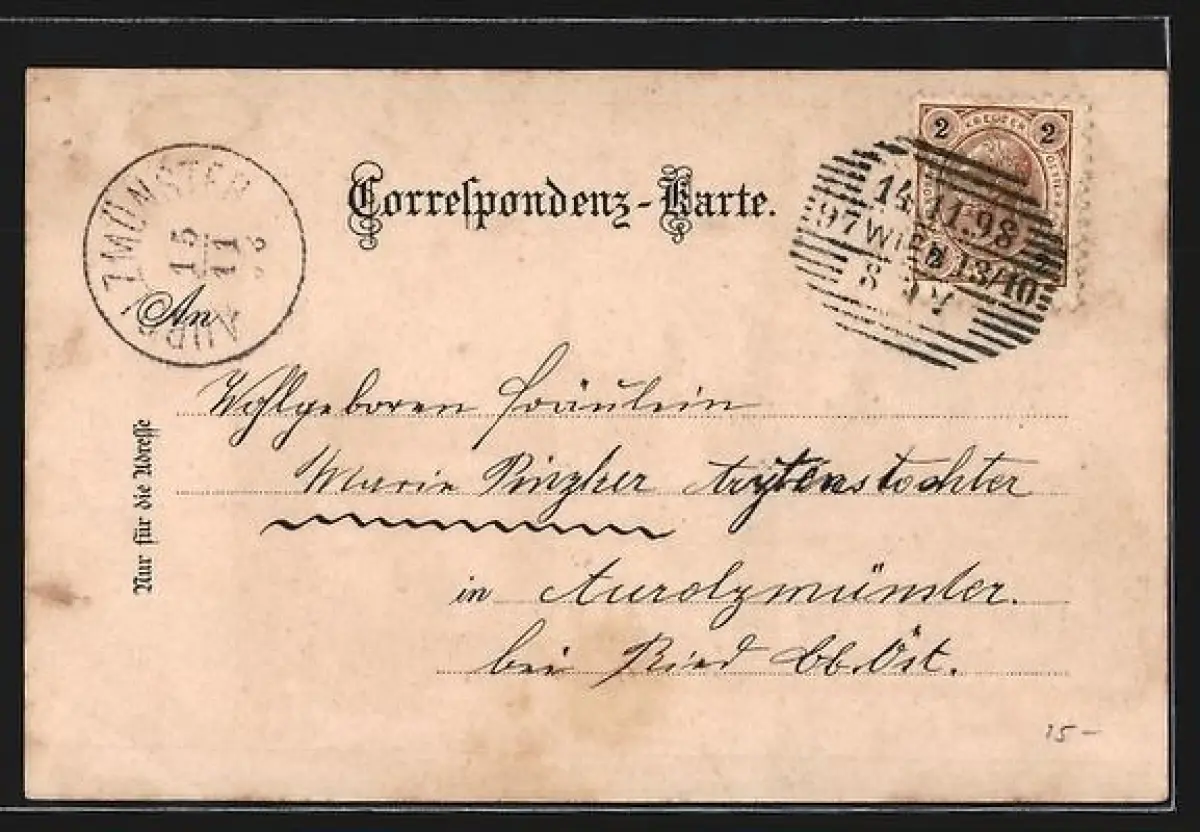 Correspondenz-Karte.
2 KREUZER 2
14.11.98
97 WIEN 13/10
8
ZMÜNSTER
15
11
98
An
Wohlgeboren Fräulein
Marie
in Aurolzmünster.
bei Ried Ob. Öst.
Nur für die Adresse
25-